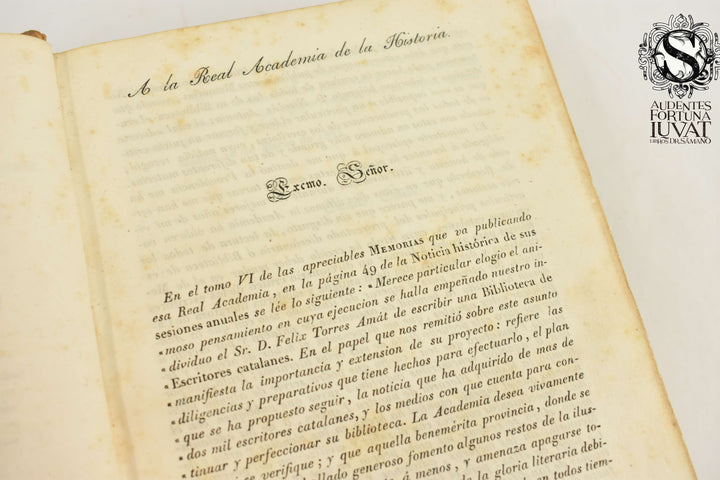 A la Real Academia de la Historia.
Excmo. Señor.
En el tomo VI de las apreciables MEMORIAS que va publicando
esa Real Academia, en la página 49 de la Noticia histórica de sus
sesiones anuales se lée lo siguiente: «Merece particular elogio el ani-
«moso pensamiento en cuya ejecucion se halla empeñado nuestro in-
«dividuo el Sr. D. Felix Torres Amát de escribir una Biblioteca de
«Escritores catalanes. En el papel que nos remitió sobre este asunto
«manifiesta la importancia y extension de su proyecto: refiere las
«diligencias y preparativos que tiene hechos para efectuarlo, el plan
«que se ha propuesto seguir, la noticia que ha adquirido de mas de
«dos mil escritores catalanes, y los medios con que cuenta para con-
«tinuar y perfeccionar su biblioteca. La Academia desea vivamente
se verifique; y que aquella benemérita provincia, donde se
hallado generoso fomento algunos restos de la ilus-
á menos, y amenaza apagarse to-
de la gloria literaria debi-
en todos tiem-
S
AUDENTES
FORTUNA
IUVAT
LIBROS DR. SÁMANO